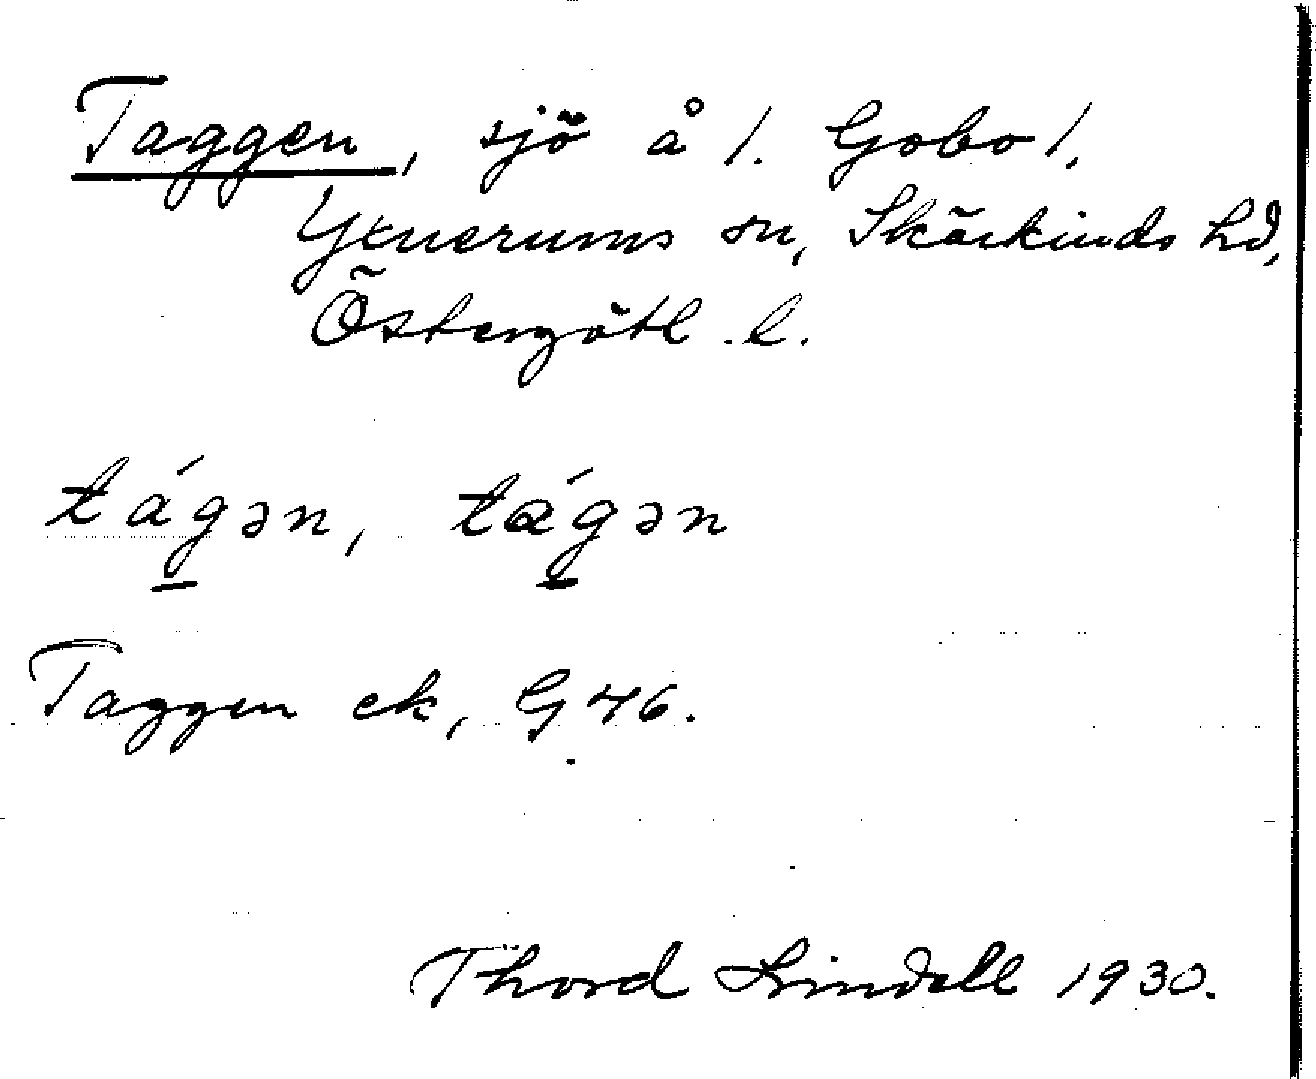 Taggen, sjö å 1. Gobo 1,
Yxnerums sn, Skärkinds hd,
Östergötl. l.
tágən, tágən
Taggen ek, G 46.
Thord Lindell 1930.